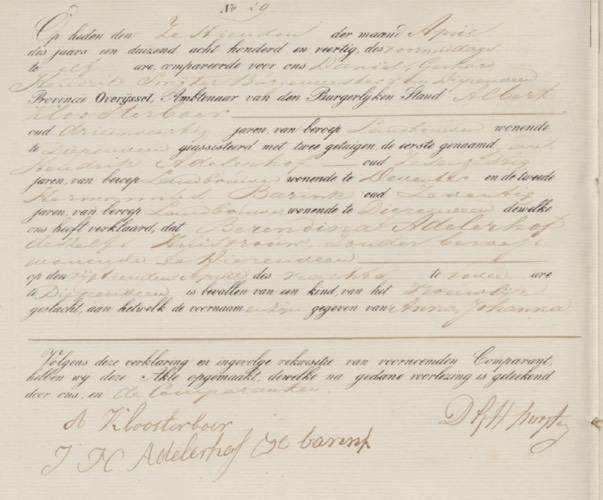 No 29
Op heden den Zestienden der maand April
des jaars een duizend acht honderd en veertig, des voormiddags
te elf ure, compareerde voor ons Daniel, Gerhard
Hendrik Smijter Burgemeester van Diepenveen
Provincie Overijssel, Ambtenaar van den Burgerlyken Stand Albert
Kloosterboer
oud drieenveertig jaren, van beroep Landbouwer wonende
te Diepenveen geassisteerd met twee getuigen, de eerste genaamd
Hendrik Adelerhof oud
jaren, van beroep Landbouwer wonende te Deventer en de tweede
Hermannus Barink oud Zeventig
jaren, van beroep Landbouwer wonende te Diepenveen dewelke
ons heeft verklaard, dat Berendina Adelerhof
deszelfs Huisvrouw, zonder beroep
wonende te Diepenveen
op den vijftienden April des nachts te ure
te Diepenveen is bevallen van een kind, van het vrouwlijk
geslacht, aan hetwelk de voornaamen zijn gegeven van Anna, Johanna
Volgens deze verklaring en ingevolge rekwisitie van voornoemden Comparant,
hebben wy deze Akte opgemaakt, dewelke na gedane voorlezing is geteekend
door ons, en de Comparanten.
A Kloosterboer
J H Adelerhof H barink